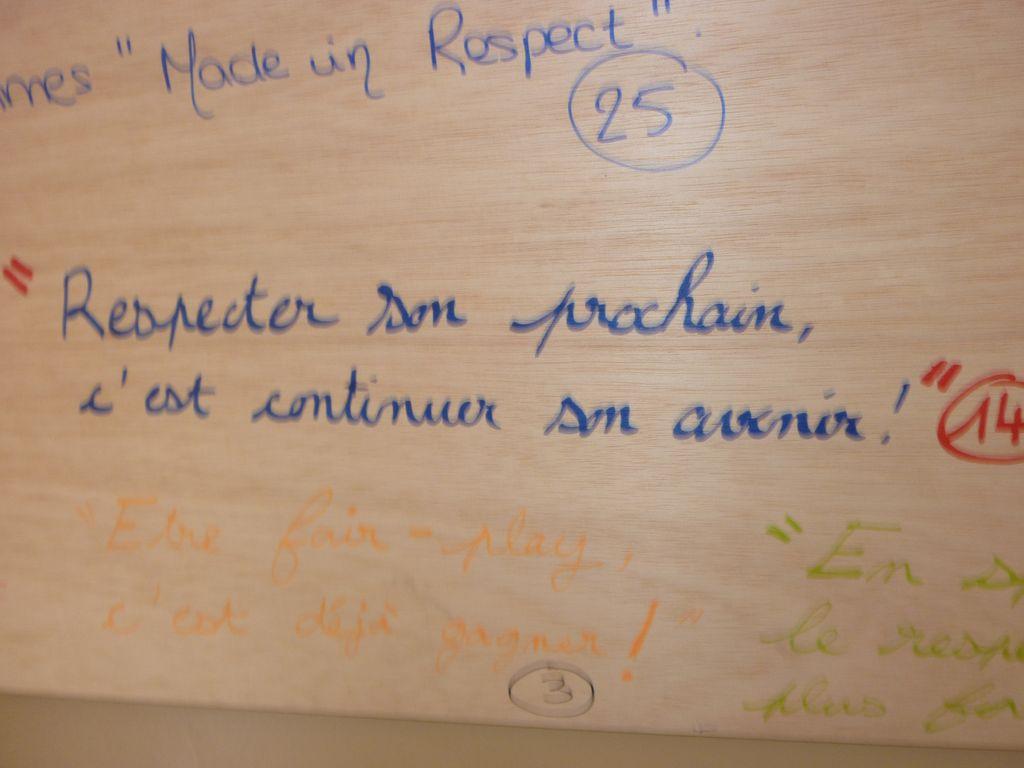 "Made in Respect".
25
"Respecter son prochain,
c'est continuer son avenir!" 14
"Etre fair-play,
c'est déjà gagner!"
3
"En
le
plus